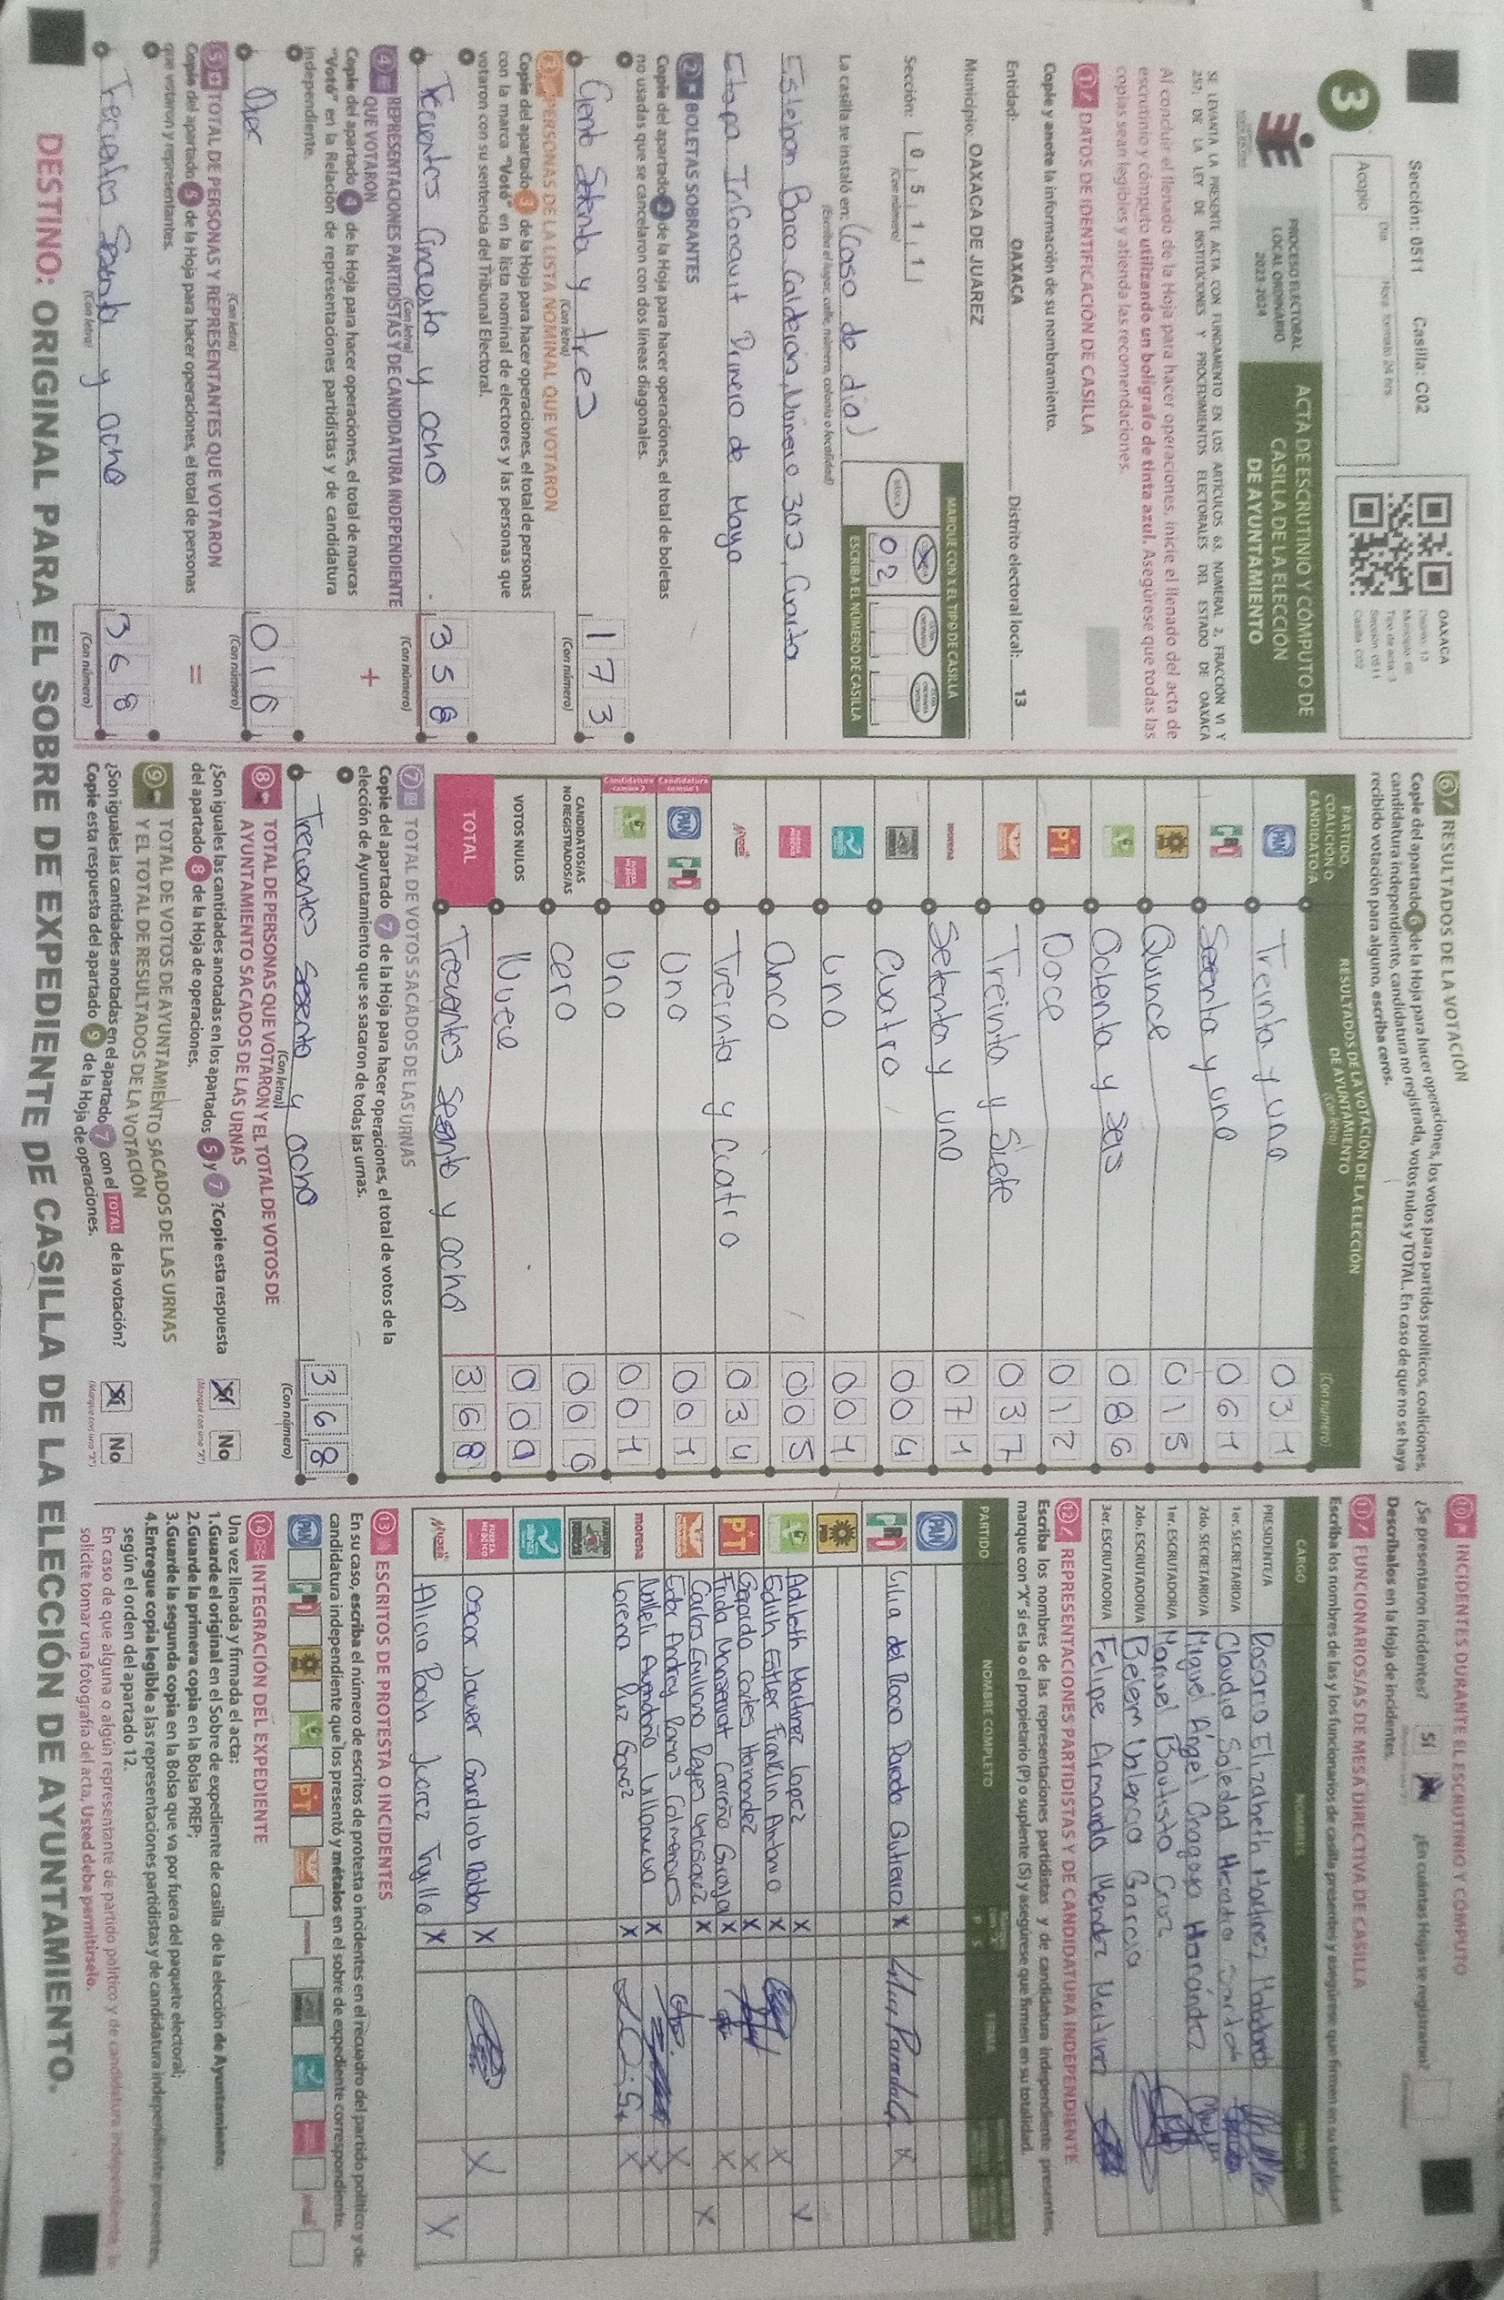 Sección: 0511 Casilla: C02
3
Acopio
Día
Hora formato 24 hrs
OAXACA
Distrito: 13
Tipo de acta: 3
Sección: 0511
Casilla: C02
PROCESO ELECTORAL
LOCAL ORDINARIO
2023-2024
ACTA DE ESCRUTINIO Y CÓMPUTO DE
CASILLA DE LA ELECCIÓN
DE AYUNTAMIENTO
SE LEVANTA LA PRESENTE ACTA CON FUNDAMENTO EN LOS ARTÍCULOS 63, NUMERAL 2, FRACCIÓN VI Y
257; DE LA LEY DE INSTITUCIONES Y PROCEDIMIENTOS ELECTORALES DEL ESTADO DE OAXACA
Al concluir el llenado de la Hoja para hacer operaciones, inicie el llenado del acta de
escrutinio y cómputo utilizando un bolígrafo de tinta azul. Asegúrese que todas las
copias sean legibles y atienda las recomendaciones.
1 DATOS DE IDENTIFICACIÓN DE CASILLA
Copie y anote la información de su nombramiento.
Entidad: OAXACA Distrito electoral local: 13
Municipio: OAXACA DE JUÁREZ
Sección: 0 5 1 1
(Con número)
MARQUE CON X EL TIPO DE CASILLA
ESCRIBA EL NÚMERO DE CASILLA
0 2
La casilla se instaló en: (Casa de dia)
(Escriba el lugar, calle, número, colonia o localidad)
Esteban Baca Calderón, Número 303, Cuarta
Etapa Infonavit Primero de Mayo
2 BOLETAS SOBRANTES
Copie del apartado 2 de la Hoja para hacer operaciones, el total de boletas
no usadas que se cancelaron con dos líneas diagonales.
Ciento Setenta y tres 1 7 3
(Con letra) (Con número)
3 PERSONAS DE LA LISTA NOMINAL QUE VOTARON
Copie del apartado 3 de la Hoja para hacer operaciones, el total de personas
con la marca "Votó" en la lista nominal de electores y las personas que
votaron con su sentencia del Tribunal Electoral.
Trecientos Cincuenta y ocho 3 5 8
(Con letra) (Con número)
+
4 REPRESENTACIONES PARTIDISTAS Y DE CANDIDATURA INDEPENDIENTE
QUE VOTARON
Copie del apartado 4 de la Hoja para hacer operaciones, el total de marcas
"Votó" en la Relación de representaciones partidistas y de candidatura
independiente.
Diez 0 1 0
(Con letra) (Con número)
=
5 TOTAL DE PERSONAS Y REPRESENTANTES QUE VOTARON
Copie del apartado 5 de la Hoja para hacer operaciones, el total de personas
que votaron y representantes.
Trecientos Sesenta y ocho 3 6 8
(Con letra) (Con número)
6 RESULTADOS DE LA VOTACIÓN
Copie del apartado 6 de la Hoja para hacer operaciones, los votos para partidos políticos, coaliciones,
candidatura independiente, candidatura no registrada, votos nulos y TOTAL. En caso de que no se haya
recibido votación para alguno, escriba ceros.
PARTIDO,
COALICIÓN O
CANDIDATO/A
RESULTADOS DE LA VOTACIÓN DE LA ELECCIÓN
DE AYUNTAMIENTO
(Con letra)
(Con número)
PAN Treinta y uno 0 3 1
PRI Sesenta y uno 0 6 1
Quince 0 1 5
Ochenta y Seis 0 8 6
PT Doce 0 1 2
Treinta y Siete 0 3 7
morena Setenta y uno 0 7 1
Cuatro 0 0 4
uno 0 0 1
Cinco 0 0 5
Treinta y Cuatro 0 3 4
Candidatura común 1 PAN PRI Uno 0 0 1
Candidatura común 2 Uno 0 0 1
CANDIDATOS/AS
NO REGISTRADOS/AS cero 0 0 0
VOTOS NULOS Nueve 0 0 9
TOTAL Trecientos Sesenta y ocho 3 6 8
7 TOTAL DE VOTOS SACADOS DE LAS URNAS
Copie del apartado 7 de la Hoja para hacer operaciones, el total de votos de la
elección de Ayuntamiento que se sacaron de todas las urnas.
Trecientos Sesenta y ocho 3 6 8
(Con letra) (Con número)
8 TOTAL DE PERSONAS QUE VOTARON Y EL TOTAL DE VOTOS DE
AYUNTAMIENTO SACADOS DE LAS URNAS
¿Son iguales las cantidades anotadas en los apartados 5 y 7 ?Copie esta respuesta
del apartado 8 de la Hoja de operaciones.
No
(Marque con una "X")
9 TOTAL DE VOTOS DE AYUNTAMIENTO SACADOS DE LAS URNAS
Y EL TOTAL DE RESULTADOS DE LA VOTACIÓN
¿Son iguales las cantidades anotadas en el apartado 7 con el TOTAL de la votación?
Copie esta respuesta del apartado 9 de la Hoja de operaciones.
No
(Marque con una "X")
10 INCIDENTES DURANTE EL ESCRUTINIO Y CÓMPUTO
¿Se presentaron incidentes? Sí ¿En cuántas Hojas se registraron?
Descríbalos en la Hoja de incidentes.
11 FUNCIONARIOS/AS DE MESA DIRECTIVA DE CASILLA
Escriba los nombres de las y los funcionarios de casilla presentes y asegúrese que firmen en su totalidad.
CARGO NOMBRES FIRMA
PRESIDENTE/A Rosario Elizabeth
1er. SECRETARIO/A Claudia Soledad
2do. SECRETARIO/A Miguel Ángel Hernández
1er. ESCRUTADOR/A Manuel Bautista Cruz
2do. ESCRUTADOR/A Belem Valencia García
3er. ESCRUTADOR/A Felipe Armando Mendez Martinez
12 REPRESENTACIONES PARTIDISTAS Y DE CANDIDATURA INDEPENDIENTE
Escriba los nombres de las representaciones partidistas y de candidatura independiente presentes,
marque con "X" si es la o el propietario (P) o suplente (S) y asegúrese que firmen en su totalidad.
PARTIDO NOMBRE COMPLETO FIRMA
PAN
PRI Lilia del Rocio Parada Gutierrez X
Adileth Martinez Lopez X
Edith Esther Franklin Antonio X
Gerardo Cortes Hernandez X
PT Frida Monserrat Carreño X
Carlos Emiliano Reyes Velasquez X
Eder Andrey Ramos Colmenares
Nalleli Avendaño Villanueva X
morena Lorena Ruz Gomez X
Oscar Javier X
Alicia Paola Juarez Trujillo X
13 ESCRITOS DE PROTESTA O INCIDENTES
En su caso, escriba el número de escritos de protesta o incidentes en el recuadro del partido político y de
candidatura independiente que los presentó y métalos en el sobre de expediente correspondiente.
14 INTEGRACIÓN DEL EXPEDIENTE
Una vez llenada y firmada el acta:
1.Guarde el original en el Sobre de expediente de casilla de la elección de Ayuntamiento;
2.Guarde la primera copia en la Bolsa PREP;
3.Guarde la segunda copia en la Bolsa que va por fuera del paquete electoral;
4.Entregue copia legible a las representaciones partidistas y de candidatura independiente presentes,
según el orden del apartado 12.
En caso de que alguna o algún representante de partido político y de candidatura independiente le
solicite tomar una fotografía del acta, Usted debe permitírselo.
DESTINO: ORIGINAL PARA EL SOBRE DE EXPEDIENTE DE CASILLA DE LA ELECCIÓN DE AYUNTAMIENTO.